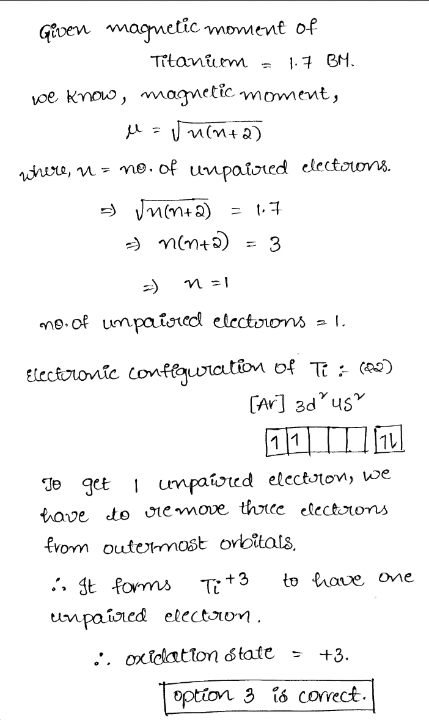 Given magnetic moment of
Titanium = 1.7 BM.
we know, magnetic moment,
μ = √n(n+2)
where, n = no. of unpaired electrons.
⇒ √n(n+2) = 1.7
⇒ n(n+2) = 3
⇒ n = 1
no. of unpaired electrons = 1.
Electronic configuration of Ti :- (22)
[Ar] 3d² 4s²
1 1 1L
To get 1 unpaired electron, we
have to remove three electrons
from outermost orbitals.
∴ It forms Ti⁺³ to have one
unpaired electron.
∴ oxidation state = +3.
option 3 is correct.